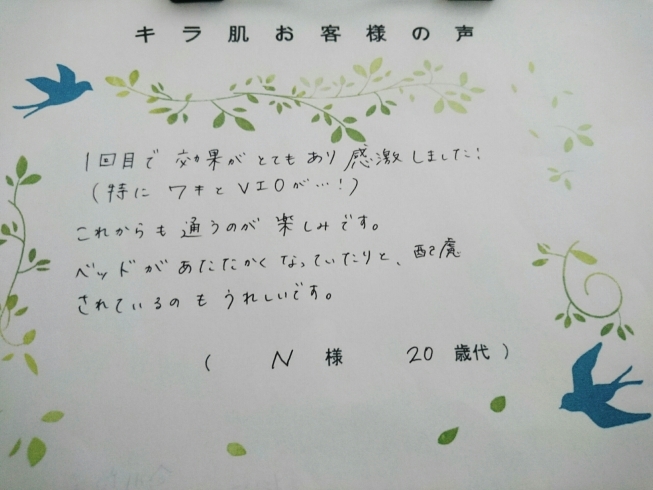 キラ肌お客様の声
1回目で効果がとてもあり感激しました!
(特にワキとVIOが…!)
これからも通うのが楽しみです。
ベッドがあたたかくなっていたりと、配慮
されているのもうれしいです。
( N 様 20 歳代 )